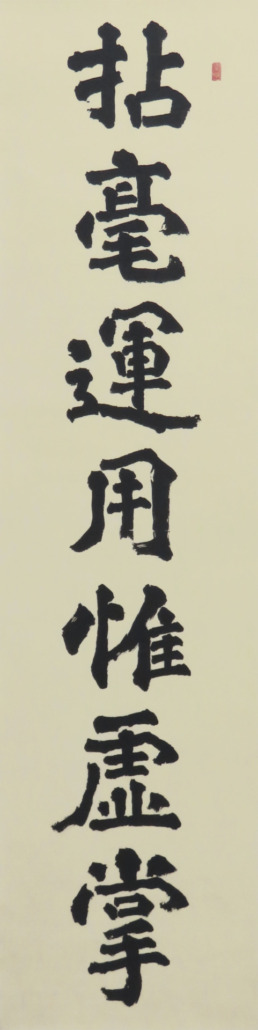 拈毫運用惟虛掌